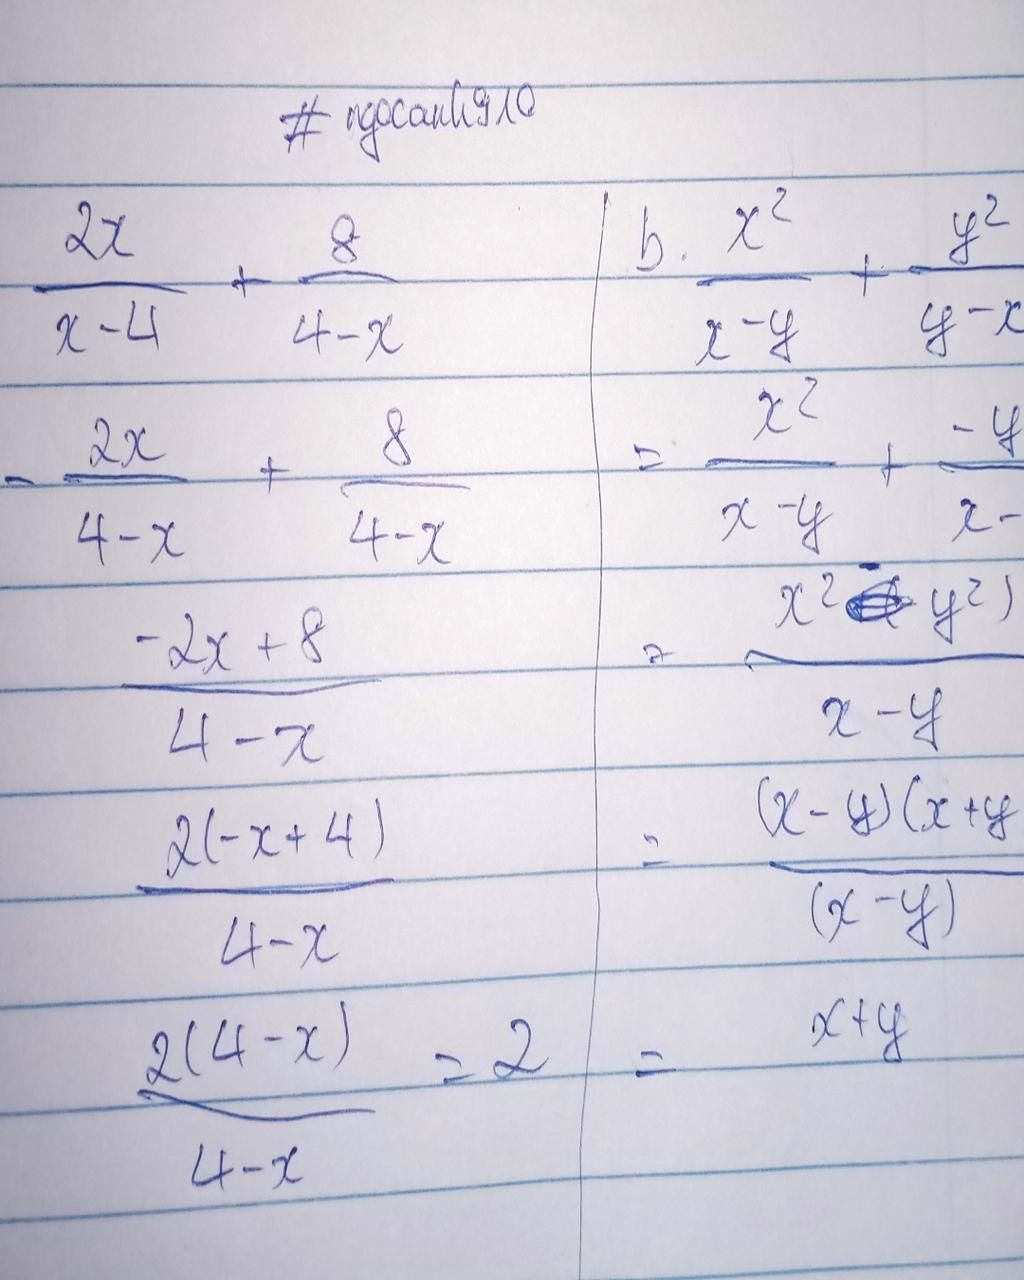 # ngocanh910
2x/(x-4) + 8/(4-x)
- 2x/(4-x) + 8/(4-x)
(-2x+8)/(4-x)
2(-x+4)/(4-x)
2(4-x)/(4-x) = 2
b. x²/(x-y) + y²/(y-x
= x²/(x-y) + -y/(x-
= x² - y²)/(x-y)
= (x-y)(x+y/(x-y)
= x+y